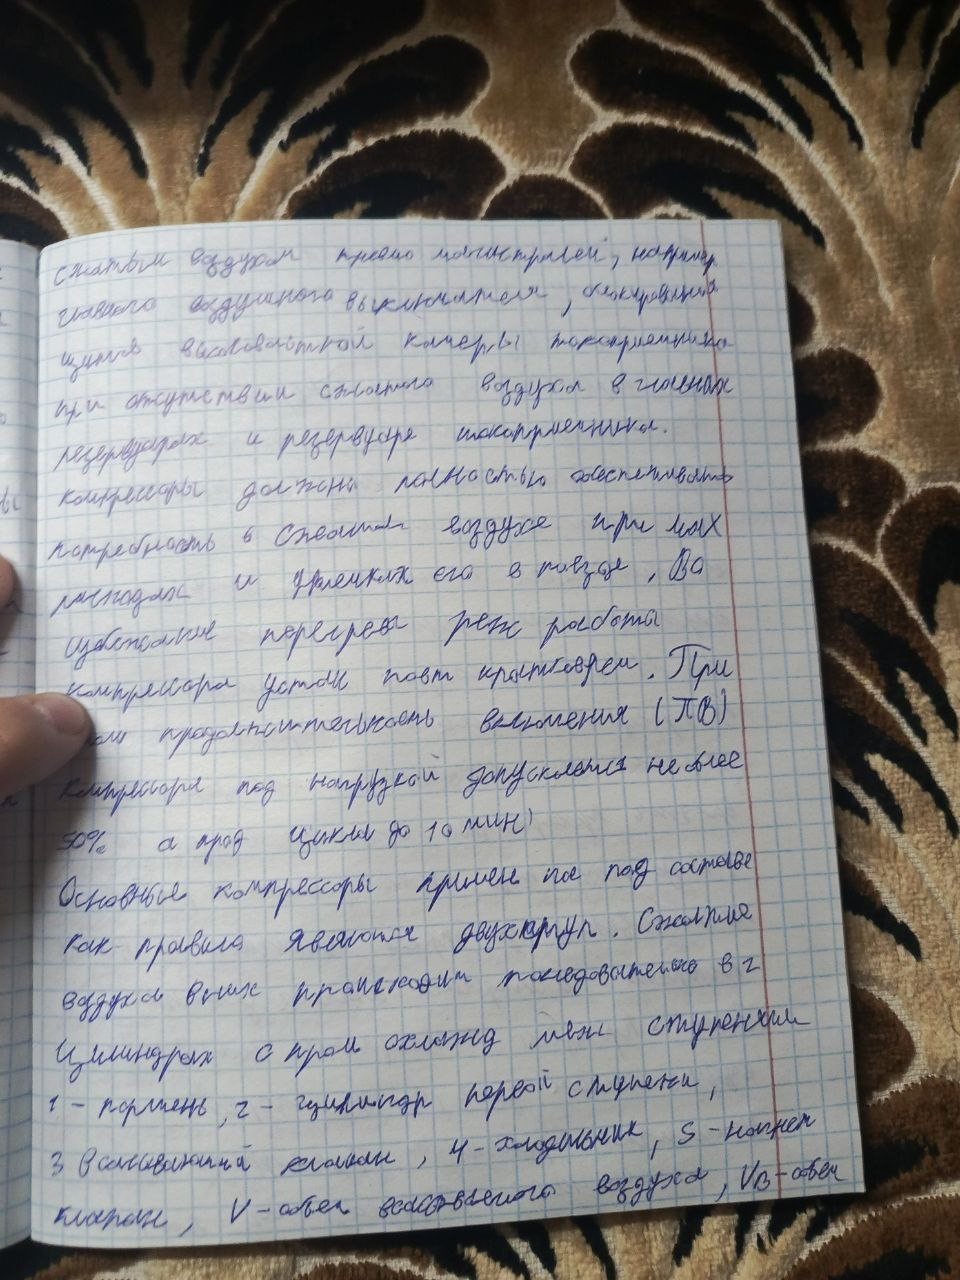 сжатым воздухом пневмо магистралей, наприм
главного воздушного выключателя, блокирования
щитов высоковольтной камеры токоприемника
при отсутствии сжатого воздуха в главных
резервуарах и резервуаре токоприемника.
компрессоры должны полностью обеспечивать
потребность в сжатом воздухе при мах
расходах и утечках его в поезде, Во
избежание перегрева реж работы
компрессора устан повт кратковрем. При
том продолжительность включения (ПВ)
компрессора под нагрузкой допускается не более
50% а прод цикла до 10 мин
Основные компрессоры примен на под составе
как правило являются двухступ. Сжатие
воздуха в них происходит последовательно в 2
цилиндрах с пром охлажд меж ступенями
1 - поршень, 2 - цилиндр первой ступени,
3 Всасывающий клапан, 4 - холодильник, 5 - нагнет
клапан, V - объем всасываемого воздуха, VВ - объем